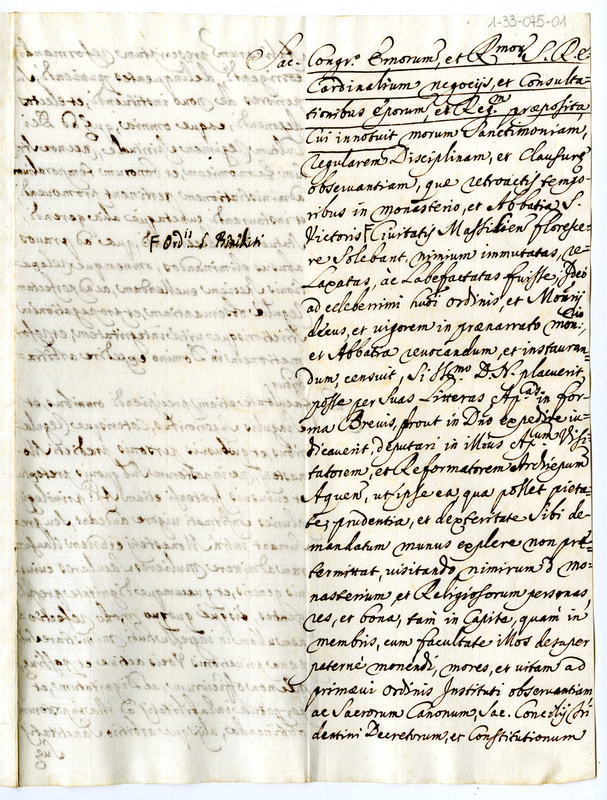 1-33-075-01
Sac. Congr.º Emorum, et Rmor. S. R. E.
Cardinalium negocijs, et Consulta-
tionibus Eporum, et Reg.m præposita,
Cui innotuit morum Sanctimoniam,
regularem Disciplinam, et Clausuræ
observantiam, que retroactis tempo-
ribus in monasterio, et Abbatia S.
Victoris F Civitatis Massilien florere-
re Solebant, nimium immutatas, re-
Laxatas, àc Labefactatas fuisse, Ideo
F Ord.is S. Benedicti
ad celeberrimi huoi ordinis, et Monrij
decus, et vigorem in prænarrato mon.rio
et Abbatia reuocandum, et instauran-
dum, censuit, Si SS.mo D. N. placuerit,
posse per Suas Litteras Ap.cas in for-
ma Brevis, prout in Dno expedire iu-
dicauerit, deputari in illius Ap.cum Visi-
tatorem, et Reformatorem Archiepum
Aquen, ut ipse ea, qua pollet pieta-
te, prudentia, et dexteritate Sibi de-
mandatum munus explere non præ-
termittat, visitando nimirum d. mo-
nasterium, et Religiosorum personas,
res, et bona, tam in Capite, quam in
membris, cum facultate illos desuper
paterne monendi, mores, et vitam ad
primæui ordinis Instituti observantiam
ac Sacrorum Canonum, Sac. Concilij Tri
dentini Decretorum, et Constitutionum